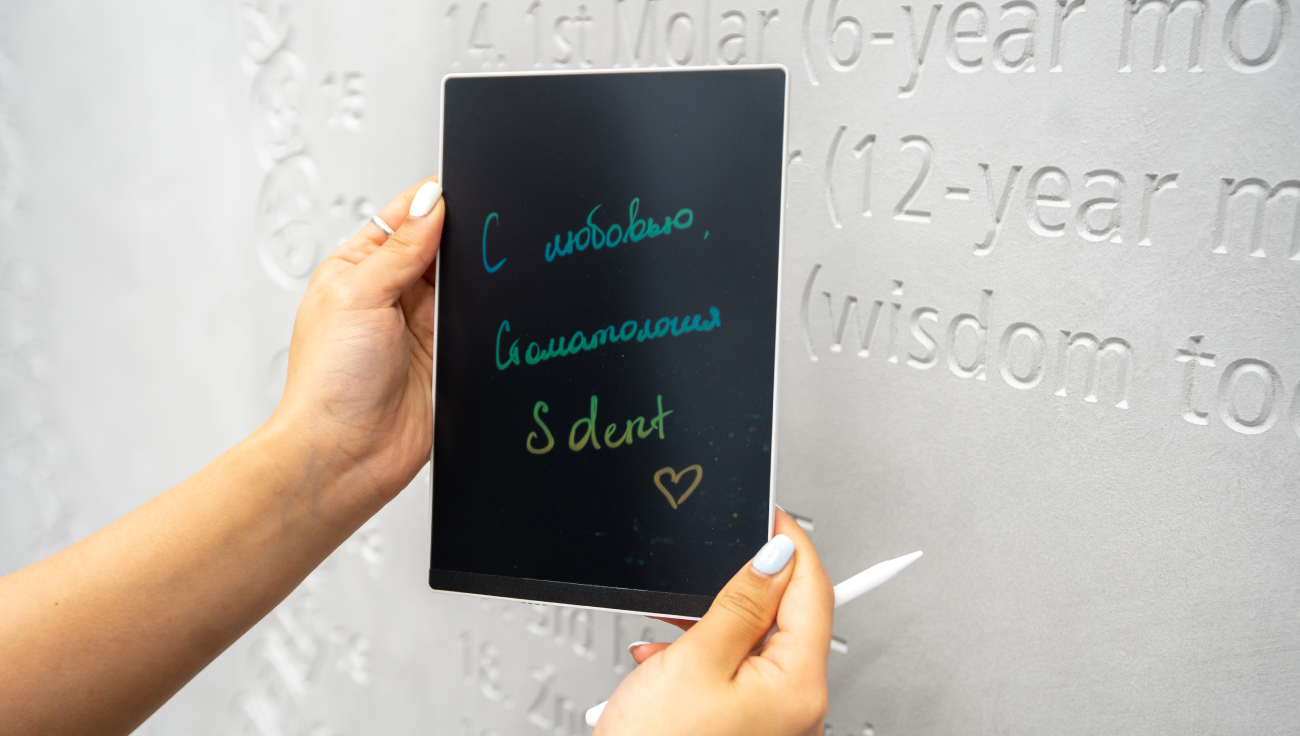 14. 1st Molar (6-year mo
15
(12-year m
(wisdom too
С любовью,
Стоматология
S dent
18. 2nd